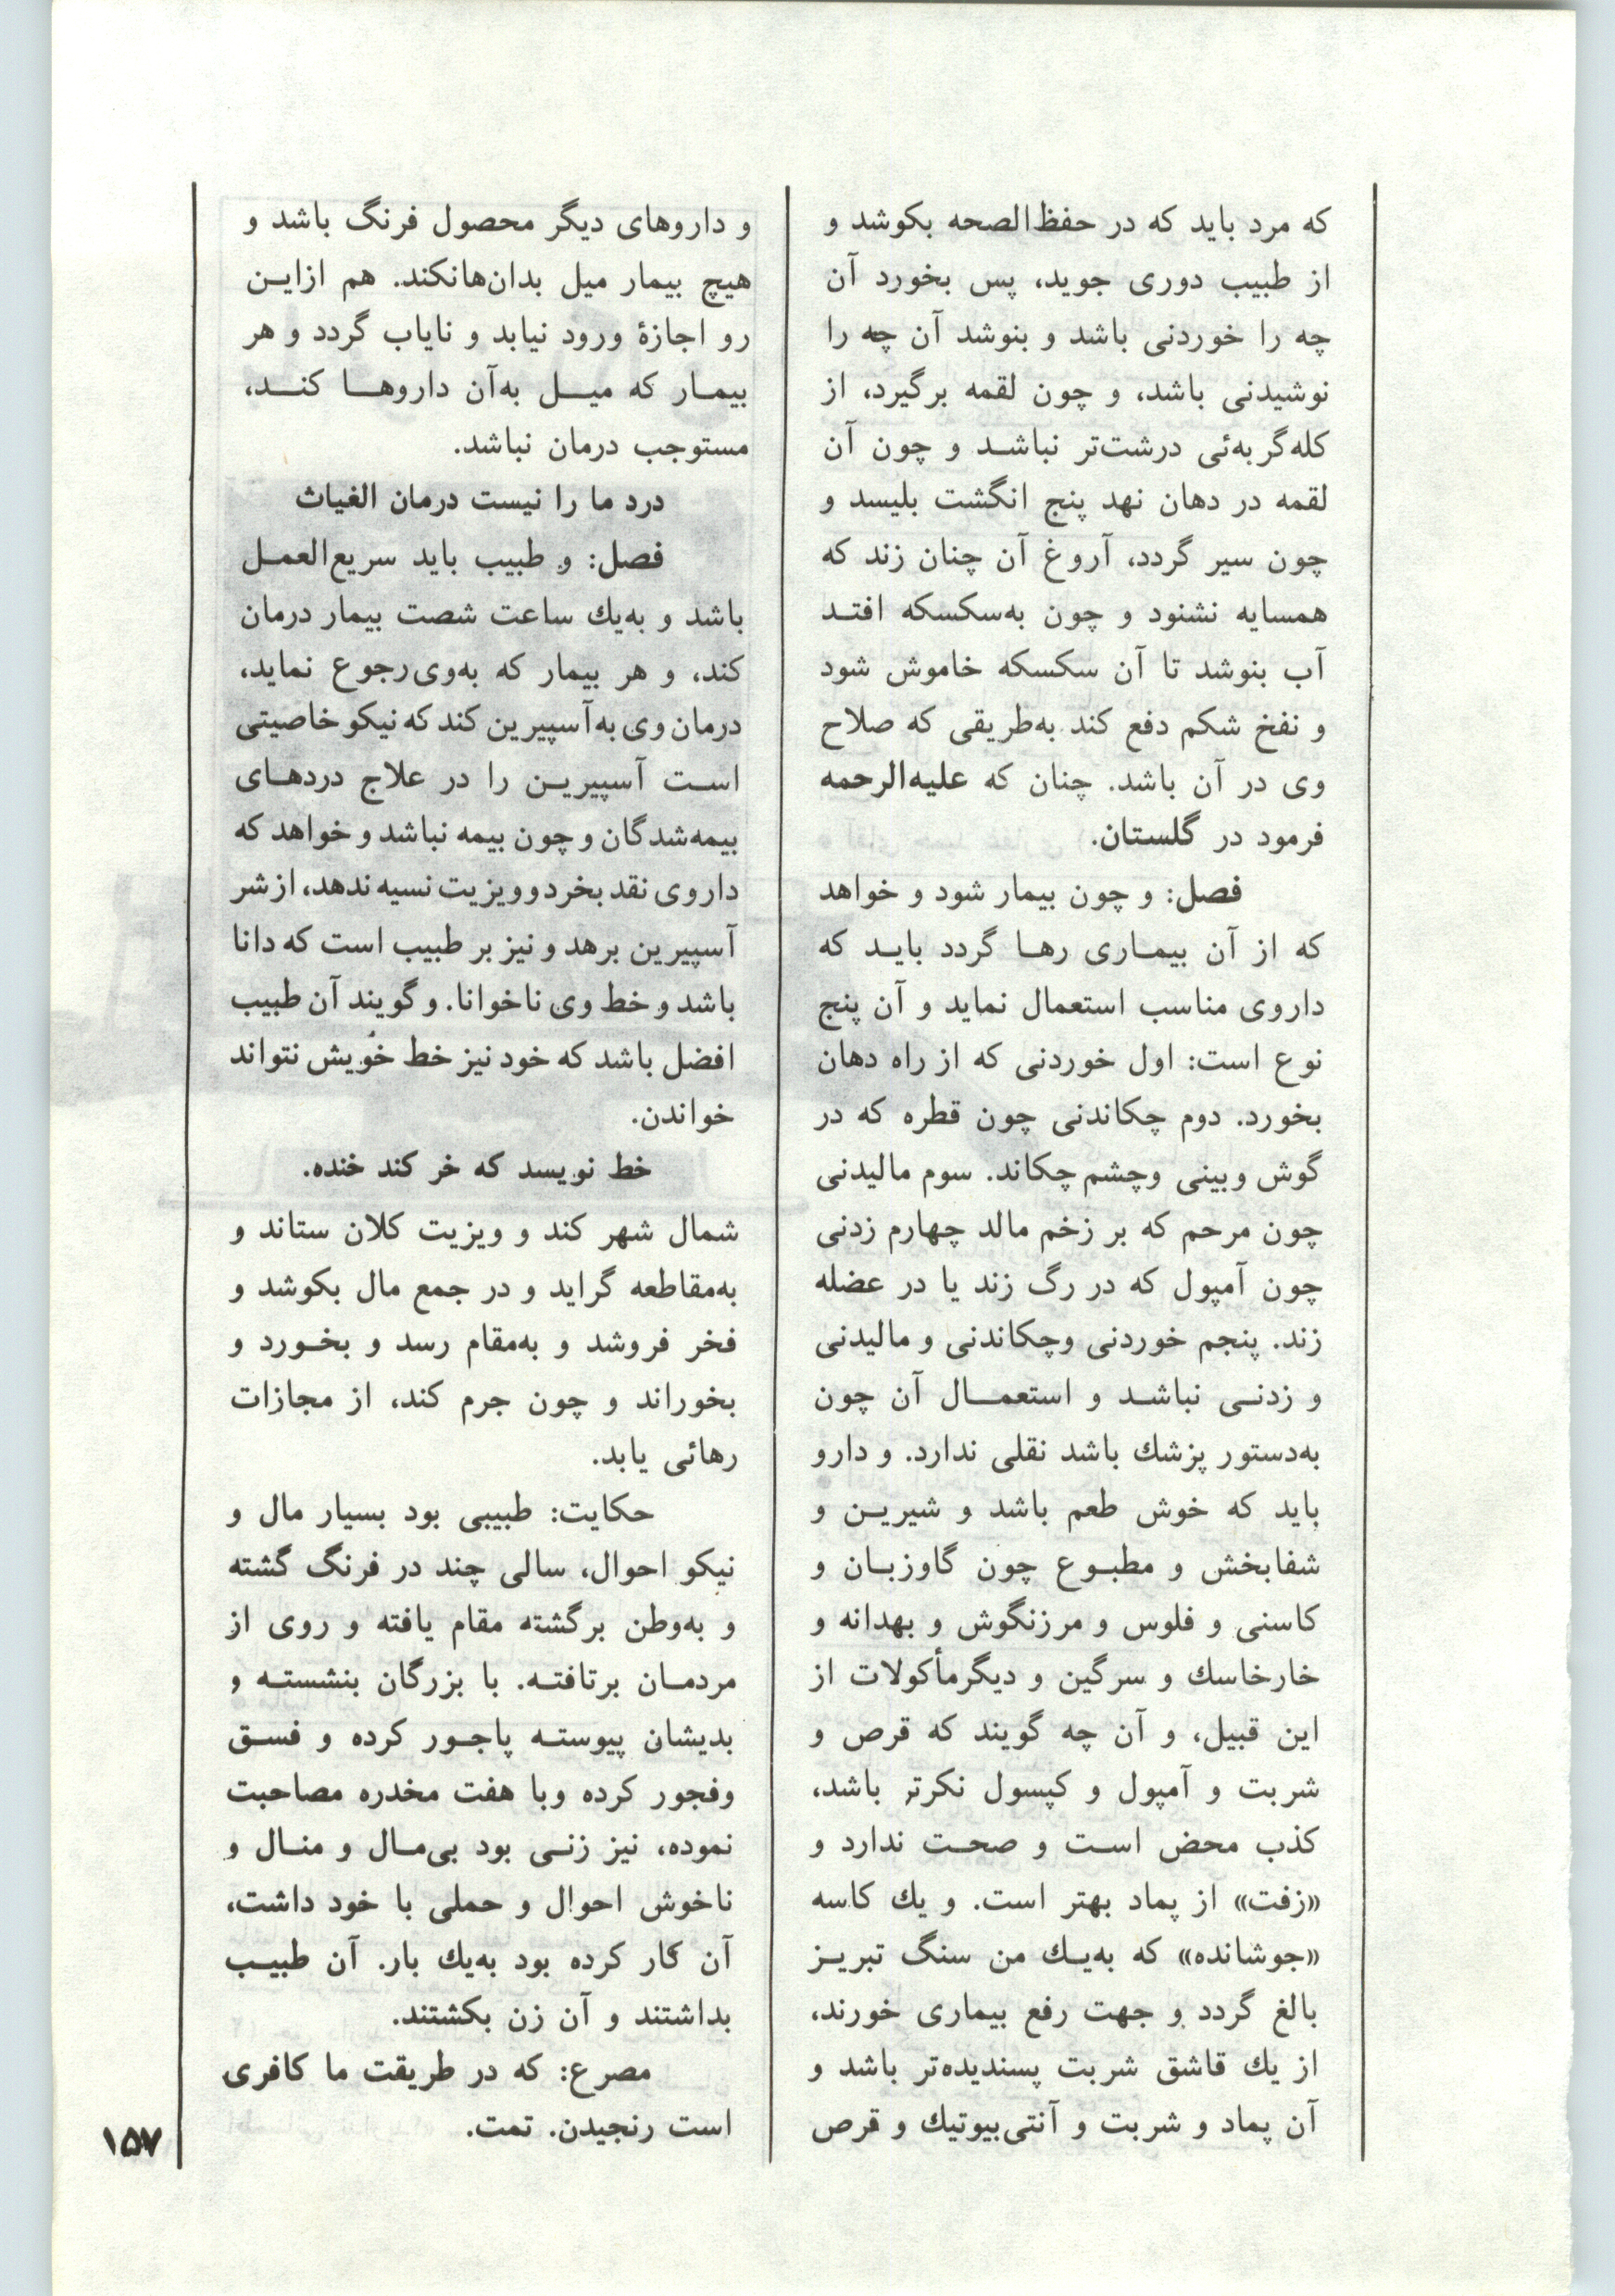 که مرد باید که در حفظ‌الصحه بکوشد و
از طبیب دوری جوید، پس بخورد آن
چه را خوردنی باشد و بنوشد آن چه را
نوشیدنی باشد، و چون لقمه برگیرد، از
کله‌گربه‌ئی درشت‌تر نباشد و چون آن
لقمه در دهان نهد پنج انگشت بلیسد و
چون سیر گردد، آروغ آن چنان زند که
همسایه نشنود و چون به‌سکسکه افتد
آب بنوشد تا آن سکسکه خاموش شود
و نفخ شکم دفع کند به‌طریقی که صلاح
وی در آن باشد. چنان که علیه‌الرحمه
فرمود در گلستان.
فصل: و چون بیمار شود و خواهد
که از آن بیماری رها گردد باید که
داروی مناسب استعمال نماید و آن پنج
نوع است: اول خوردنی که از راه دهان
بخورد. دوم چکاندنی چون قطره که در
گوش وبینی وچشم چکاند. سوم مالیدنی
چون مرحم که بر زخم مالد چهارم زدنی
چون آمپول که در رگ زند یا در عضله
زند. پنجم خوردنی وچکاندنی و مالیدنی
و زدنی نباشد و استعمال آن چون
به‌دستور پزشك باشد نقلی ندارد. و دارو
باید که خوش طعم باشد و شیرین و
شفابخش و مطبوع چون گاوزبان و
کاسنی و فلوس و مرزنگوش و بهدانه و
خارخاسك و سرگین و دیگرمأکولات از
این قبیل، و آن چه گویند که قرص و
شربت و آمپول و کپسول نکرتر باشد،
کذب محض است و صحت ندارد و
«زفت» از پماد بهتر است. و یك کاسه
«جوشانده» که به‌یك من سنگ تبریز
بالغ گردد و جهت رفع بیماری خورند،
از یك قاشق شربت پسندیده‌تر باشد و
آن پماد و شربت و آنتی‌بیوتیك و قرص
و داروهای دیگر محصول فرنگ باشد و
هیچ بیمار میل بدان‌هانکند. هم ازاین
رو اجازهٔ ورود نیابد و نایاب گردد و هر
بیمار که میل به‌آن داروها کند،
مستوجب درمان نباشد.
درد ما را نیست درمان الغیاث
فصل: و طبیب باید سریع‌العمل
باشد و به‌یك ساعت شصت بیمار درمان
کند، و هر بیمار که به‌وی‌رجوع نماید،
درمان وی به‌آسپیرین کند که نیکو خاصیتی
است آسپیرین را در علاج دردهای
بیمه‌شدگان و چون بیمه نباشد و خواهد که
داروی نقد بخرد وویزیت نسیه ندهد، از شر
آسپیرین برهد و نیز بر طبیب است که دانا
باشد و خط وی ناخوانا. و گویند آن طبیب
افضل باشد که خود نیز خط خویش نتواند
خواندن.
خط نویسد که خر کند خنده.
شمال شهر کند و ویزیت کلان ستاند و
به‌مقاطعه گراید و در جمع مال بکوشد و
فخر فروشد و به‌مقام رسد و بخورد و
بخوراند و چون جرم کند، از مجازات
رهائی یابد.
حکایت: طبیبی بود بسیار مال و
نیکو احوال، سالی چند در فرنگ گشته
و به‌وطن برگشته مقام یافته و روی از
مردمان برتافته. با بزرگان بنشسته و
بدیشان پیوسته پاجور کرده و فسق
وفجور کرده وبا هفت مخدره مصاحبت
نموده، نیز زنی بود بی‌مال و منال و
ناخوش احوال و حملی با خود داشت،
آن کار کرده بود به‌یك بار. آن طبیب
بداشتند و آن زن بکشتند.
مصرع: که در طریقت ما کافری
است رنجیدن. تمت.
۱۵۷